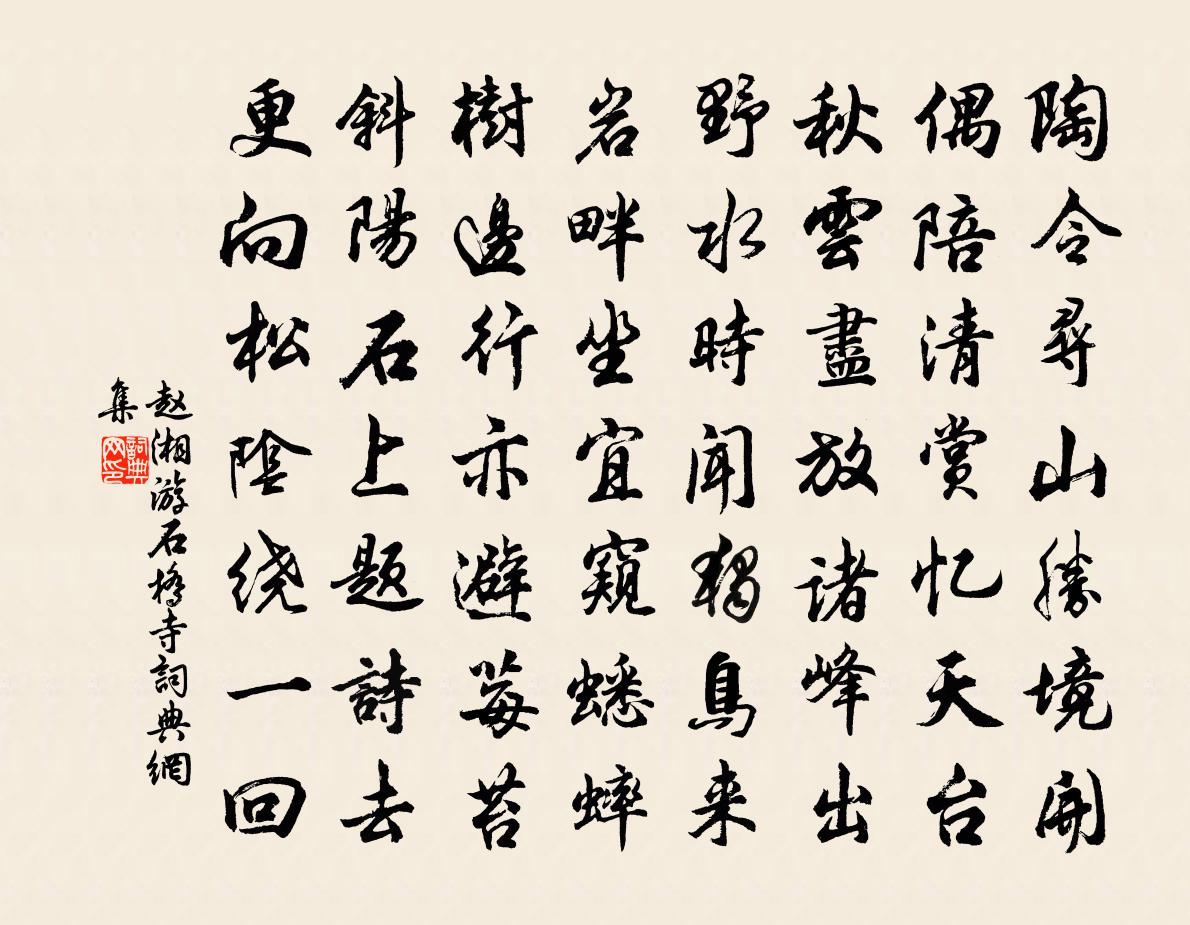 陶令尋山勝境開
偶陪清賞忆天台
秋雲盡放諸峰出
野水時聞獨鳥来
岩畔坐宜窺蟋蟀
樹邊行亦避莓苔
斜陽石上题詩去
更向松陰绕一回
赵湘游石橋寺詞典網
集
詞典
网印